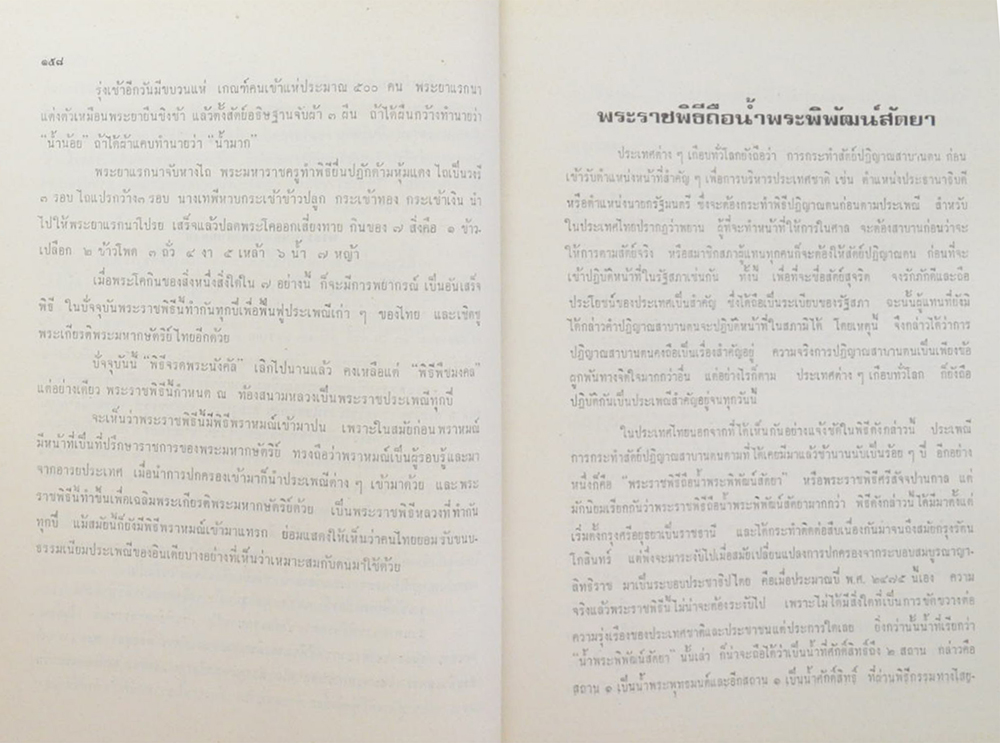 ๑๕๘
รุ่งเช้าอีกวันมีขบวนแห่ เกณฑ์คนเข้าแห่ประมาณ ๕๐๐ คน พระยาแรกนา
แต่งตัวเหมือนพระยายืนชิงช้า แล้วตั้งสัตย์อธิษฐานจับผ้า ๓ ผืน ถ้าได้ผืนกว้างทำนายว่า
“น้ำน้อย” ถ้าได้ผ้าแคบทำนายว่า “น้ำมาก”
พระยาแรกนาจับหางไถ พระมหาราชครูทำพิธียื่นปฏักด้ามหุ้มแดง ไถเป็นวงรี
๓ รอบ ไถแปรกว้าง๓ รอบ นางเทพีหาบกระเช้าข้าวปลูก กระเช้าทอง กระเช้าเงิน นำ
ไปให้พระยาแรกนาโปรย เสร็จแล้วปลดพระโคออกเสี่ยงทาย กินของ ๗ สิ่งคือ ๑ ข้าว-
เปลือก ๒ ข้าวโพด ๓ ถั่ว ๔ งา ๕ เหล้า ๖ น้ำ ๗ หญ้า
เมื่อพระโคกินของสิ่งหนึ่งสิ่งใดใน ๗ อย่างนี้ ก็จะมีการพยากรณ์ เป็นอันเสร็จ
พิธี ในปัจจุบันพระราชพิธีนี้ทำกันทุกปีเพื่อฟื้นฟูประเพณีเก่า ๆ ของไทย และเชิดชู
พระเกียรติพระมหากษัตริย์ไทยอีกด้วย
ปัจจุบันนี้ “พิธีจรดพระนังคัล” เลิกไปนานแล้ว คงเหลือแต่ “พิธีพืชมงคล”
แต่อย่างเดียว พระราชพิธีนี้กำหนด ณ ท้องสนามหลวงเป็นพระราชประเพณีทุกปี
จะเห็นว่าพระราชพิธีนี้มีพิธีพราหมณ์เข้ามาปน เพราะในสมัยก่อนพราหมณ์
มีหน้าที่เป็นที่ปรึกษาราชการของพระมหากษัตริย์ ทรงถือว่าพราหมณ์เป็นผู้รอบรู้และมา
จากอารยประเทศ เมื่อนำการปกครองเข้ามาก็นำประเพณีต่าง ๆ เข้ามาด้วย และพระ
ราชพิธีนี้ทำขึ้นเพื่อเฉลิมพระเกียรติพระมหากษัตริย์ด้วย เป็นพระราชพิธีหลวงที่ทำกัน
ทุกปี แม้สมัยนี้ก็ยังมีพิธีพราหมณ์เข้ามาแทรก ย่อมแสดงให้เห็นว่าคนไทยยอมรับขนบ-
ธรรมเนียมประเพณีของอินเดียบางอย่างที่เห็นว่าเหมาะสมกับตนมาใช้ด้วย
พระราชพิธีถือน้ำพระพิพัฒน์สัตยา
ประเทศต่าง ๆ เกือบทั่วโลกยังถือว่า การกระทำสัตย์ปฏิญาณสาบานตน ก่อน
เข้ารับตำแหน่งหน้าที่สำคัญ ๆ เพื่อการบริหารประเทศชาติ เช่น ตำแหน่งประธานาธิบดี
หรือตำแหน่งนายกรัฐมนตรี ซึ่งจะต้องกระทำพิธีปฏิญาณตนก่อนตามประเพณี สำหรับ
ในประเทศไทยปรากฏว่าพยาน ผู้ที่จะทำหน้าที่ให้การในศาล จะต้องสาบานก่อนว่าจะ
ให้การตามสัตย์จริง หรือสมาชิกสภาผู้แทนทุกคนก็จะต้องให้สัตย์ปฏิญาณตน ก่อนที่จะ
เข้าปฏิบัติหน้าที่ในรัฐสภาเช่นกัน ทั้งนี้ เพื่อที่จะซื่อสัตย์สุจริต จงรักภักดีและถือ
ประโยชน์ของประเทศเป็นสำคัญ ซึ่งได้ถือเป็นระเบียบของรัฐสภา ฉะนั้นผู้แทนที่ยังมิ
ได้กล่าวคำปฏิญาณสาบานตนจะปฏิบัติหน้าที่ในสภามิได้ โดยเหตุนี้ จึงกล่าวได้ว่าการ
ปฏิญาณสาบานตนคงถือเป็นเรื่องสำคัญอยู่ ความจริงการปฏิญาณสาบานตนเป็นเพียงข้อ
ผูกพันทางจิตใจมากกว่าอื่น แต่อย่างไรก็ตาม ประเทศต่าง ๆ เกือบทั่วโลก ก็ยังถือ
ปฏิบัติกันเป็นประเพณีสำคัญอยู่จนทุกวันนี้
ในประเทศไทยนอกจากที่ได้เห็นกันอย่างแจ้งชัดในพิธีดังกล่าวนี้ ประเพณี
การกระทำสัตย์ปฏิญาณสาบานตนตามที่ได้เคยมีมาแล้วช้านานนับเป็นร้อย ๆ ปี อีกอย่าง
หนึ่งก็คือ “พระราชพิธีถือน้ำพระพิพัฒน์สัตยา” หรือพระราชพิธีศรีสัจจปานกาล แต่
มักนิยมเรียกกันว่าพระราชพิธีถือน้ำพระพิพัฒน์สัตยามากกว่า พิธีดังกล่าวนี้ได้มีมาตั้งแต่
เริ่มตั้งกรุงศรีอยุธยาเป็นราชธานี และได้กระทำติดต่อสืบเนื่องกันมาจนถึงสมัยกรุงรัตน
โกสินทร์ แต่พึ่งจะมาระงับไปเมื่อสมัยเปลี่ยนแปลงการปกครองจากระบอบสมบูรณาญา-
สิทธิราช มาเป็นระบอบประชาธิปไตย คือเมื่อประมาณปี พ.ศ. ๒๔๗๕ นี้เอง ความ
จริงแล้วพระราชพิธีนี้ไม่น่าจะต้องระงับไป เพราะไม่ได้มีสิ่งใดที่เป็นการขัดขวางต่อ
ความรุ่งเรืองของประเทศชาติและประชาชนแต่ประการใดเลย ยิ่งกว่านั้นน้ำที่เรียกว่า
“น้ำพระพิพัฒน์สัตยา” นั้นเล่า ก็น่าจะถือได้ว่าเป็นน้ำที่ศักดิ์สิทธิ์ถึง ๒ สถาน กล่าวคือ
สถาน ๑ เป็นน้ำพระพุทธมนต์และอีกสถาน ๑ เป็นน้ำศักดิ์สิทธิ์ ที่ผ่านพิธีกรรมทางไสย-